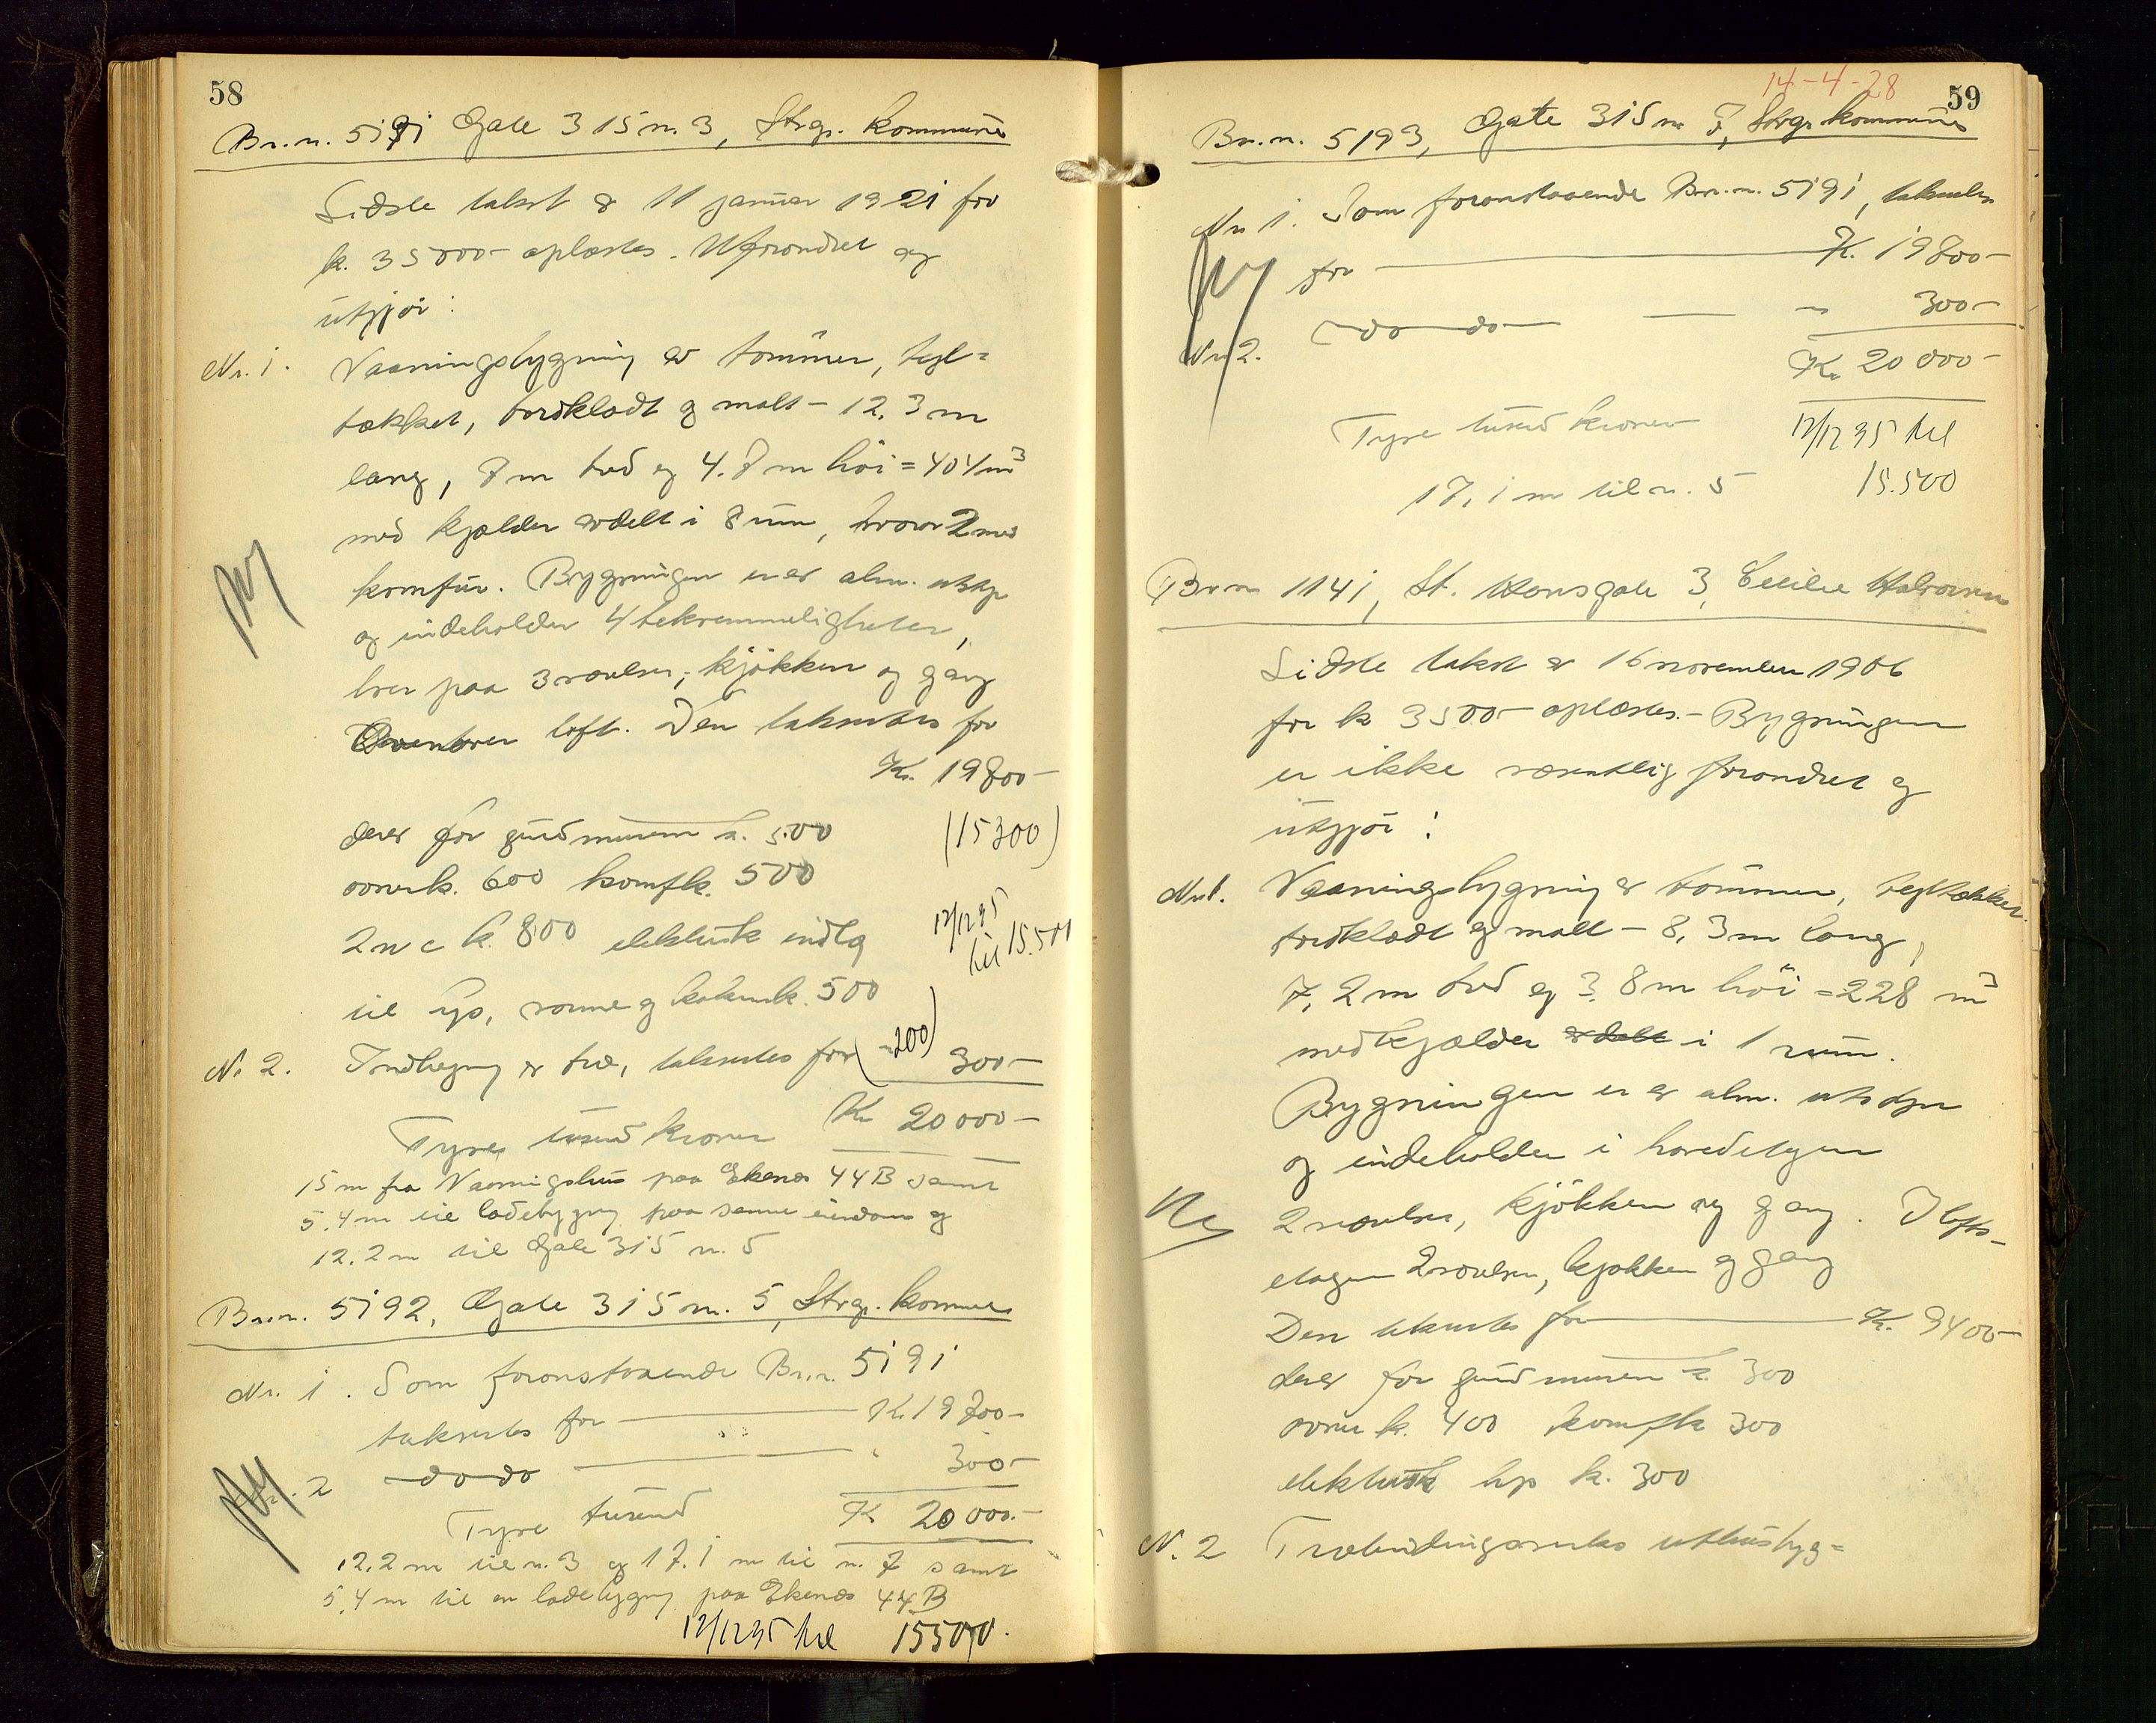 58
Br.n. 5191 Gate 315 n. 3, Strgs. kommune
Sidste takst av 11 januar 1921 for
k. 35000- oplæstes. Uforandret og
utgjør:
Nr. 1. Vaaningsbygning av tømmer, tegl=
tækket, bordklædt og malt - 12,3 m
lang, 7 m bred og 4.7 m høi = 404 m³
med kjælder avdelt i 8 rum, hvorav 2 med
komfur. Bygningen er av alm. utstyr
og indeholder 4 bekvemmeligheter,
hver paa 3 værelser, kjøkken og gang
Ovenover loft. Den takseres for
Kr. 19700-
derav for grundmuren k. 500
(15300)
ovner k. 600 komf k. 500
2 w c k. 800 elektrisk indlg
12/12 35
til 15.500
til lys, varme og kokn k. 500
N. 2. Indhegning av træ, takseres for (-200) 300-
Tyve tusind kroner Kr 20000-
15 m fra Vaaningshus paa Ekenæs 44B samt
5.4 m til ladebygng paa samme eiendom og
12.2 m til Gate 315 n. 5
Br.n. 5192, Gate 315 n. 5, Strgs. kommune
Nr. 1. Som foranstaaende Br.n. 5191
takseres for Kr. 19700-
Nr. 2 do do " 300-
Tyve tusind K 20000.-
12.2 m til n. 3 og 17.1 m til n. 7 samt
5.4 m til en ladebygng paa Ekenæs 44B
12/12 35 til 15500.
14-4-28
59
Br.n. 5193, Gate 315 n. 7, Strgs kommune
Nr 1. Som foranstaaende Br.n. 5191, takseres
for K. 19700-
Nr 2. do do " 300-
Kr 20000-
Tyve tusind kroner 12/12 35 til
17,1 m til n. 5 15.500
Br n 1141, St. Hansgate 3, Cecilie Halvorsen
Sidste takst av 16 november 1906
for k 3500- oplæstes. - Bygningen
er ikke væsentlig forandret og
utgjør:
Nr 1. Vaaningsbygning av tømmer, tegltækket
bordklædt og malt - 8,3 m lang,
7,2 m bred og 3.8 m høi = 228 m³
med kjælder avdelt i 1 rum.
Bygningen er av alm. utstyr
og indeholder i hovedetagen
Ny 2 værelser, kjøkken og gang. I lofts-
etagen 2 værelser, kjøkken og gang
Den takseres for K. 9400-
derav for grundmuren k. 300
ovner k. 400 komf k 300
elektrisk lys k. 300
N. 2 Træbindingsverks uthusbyg=